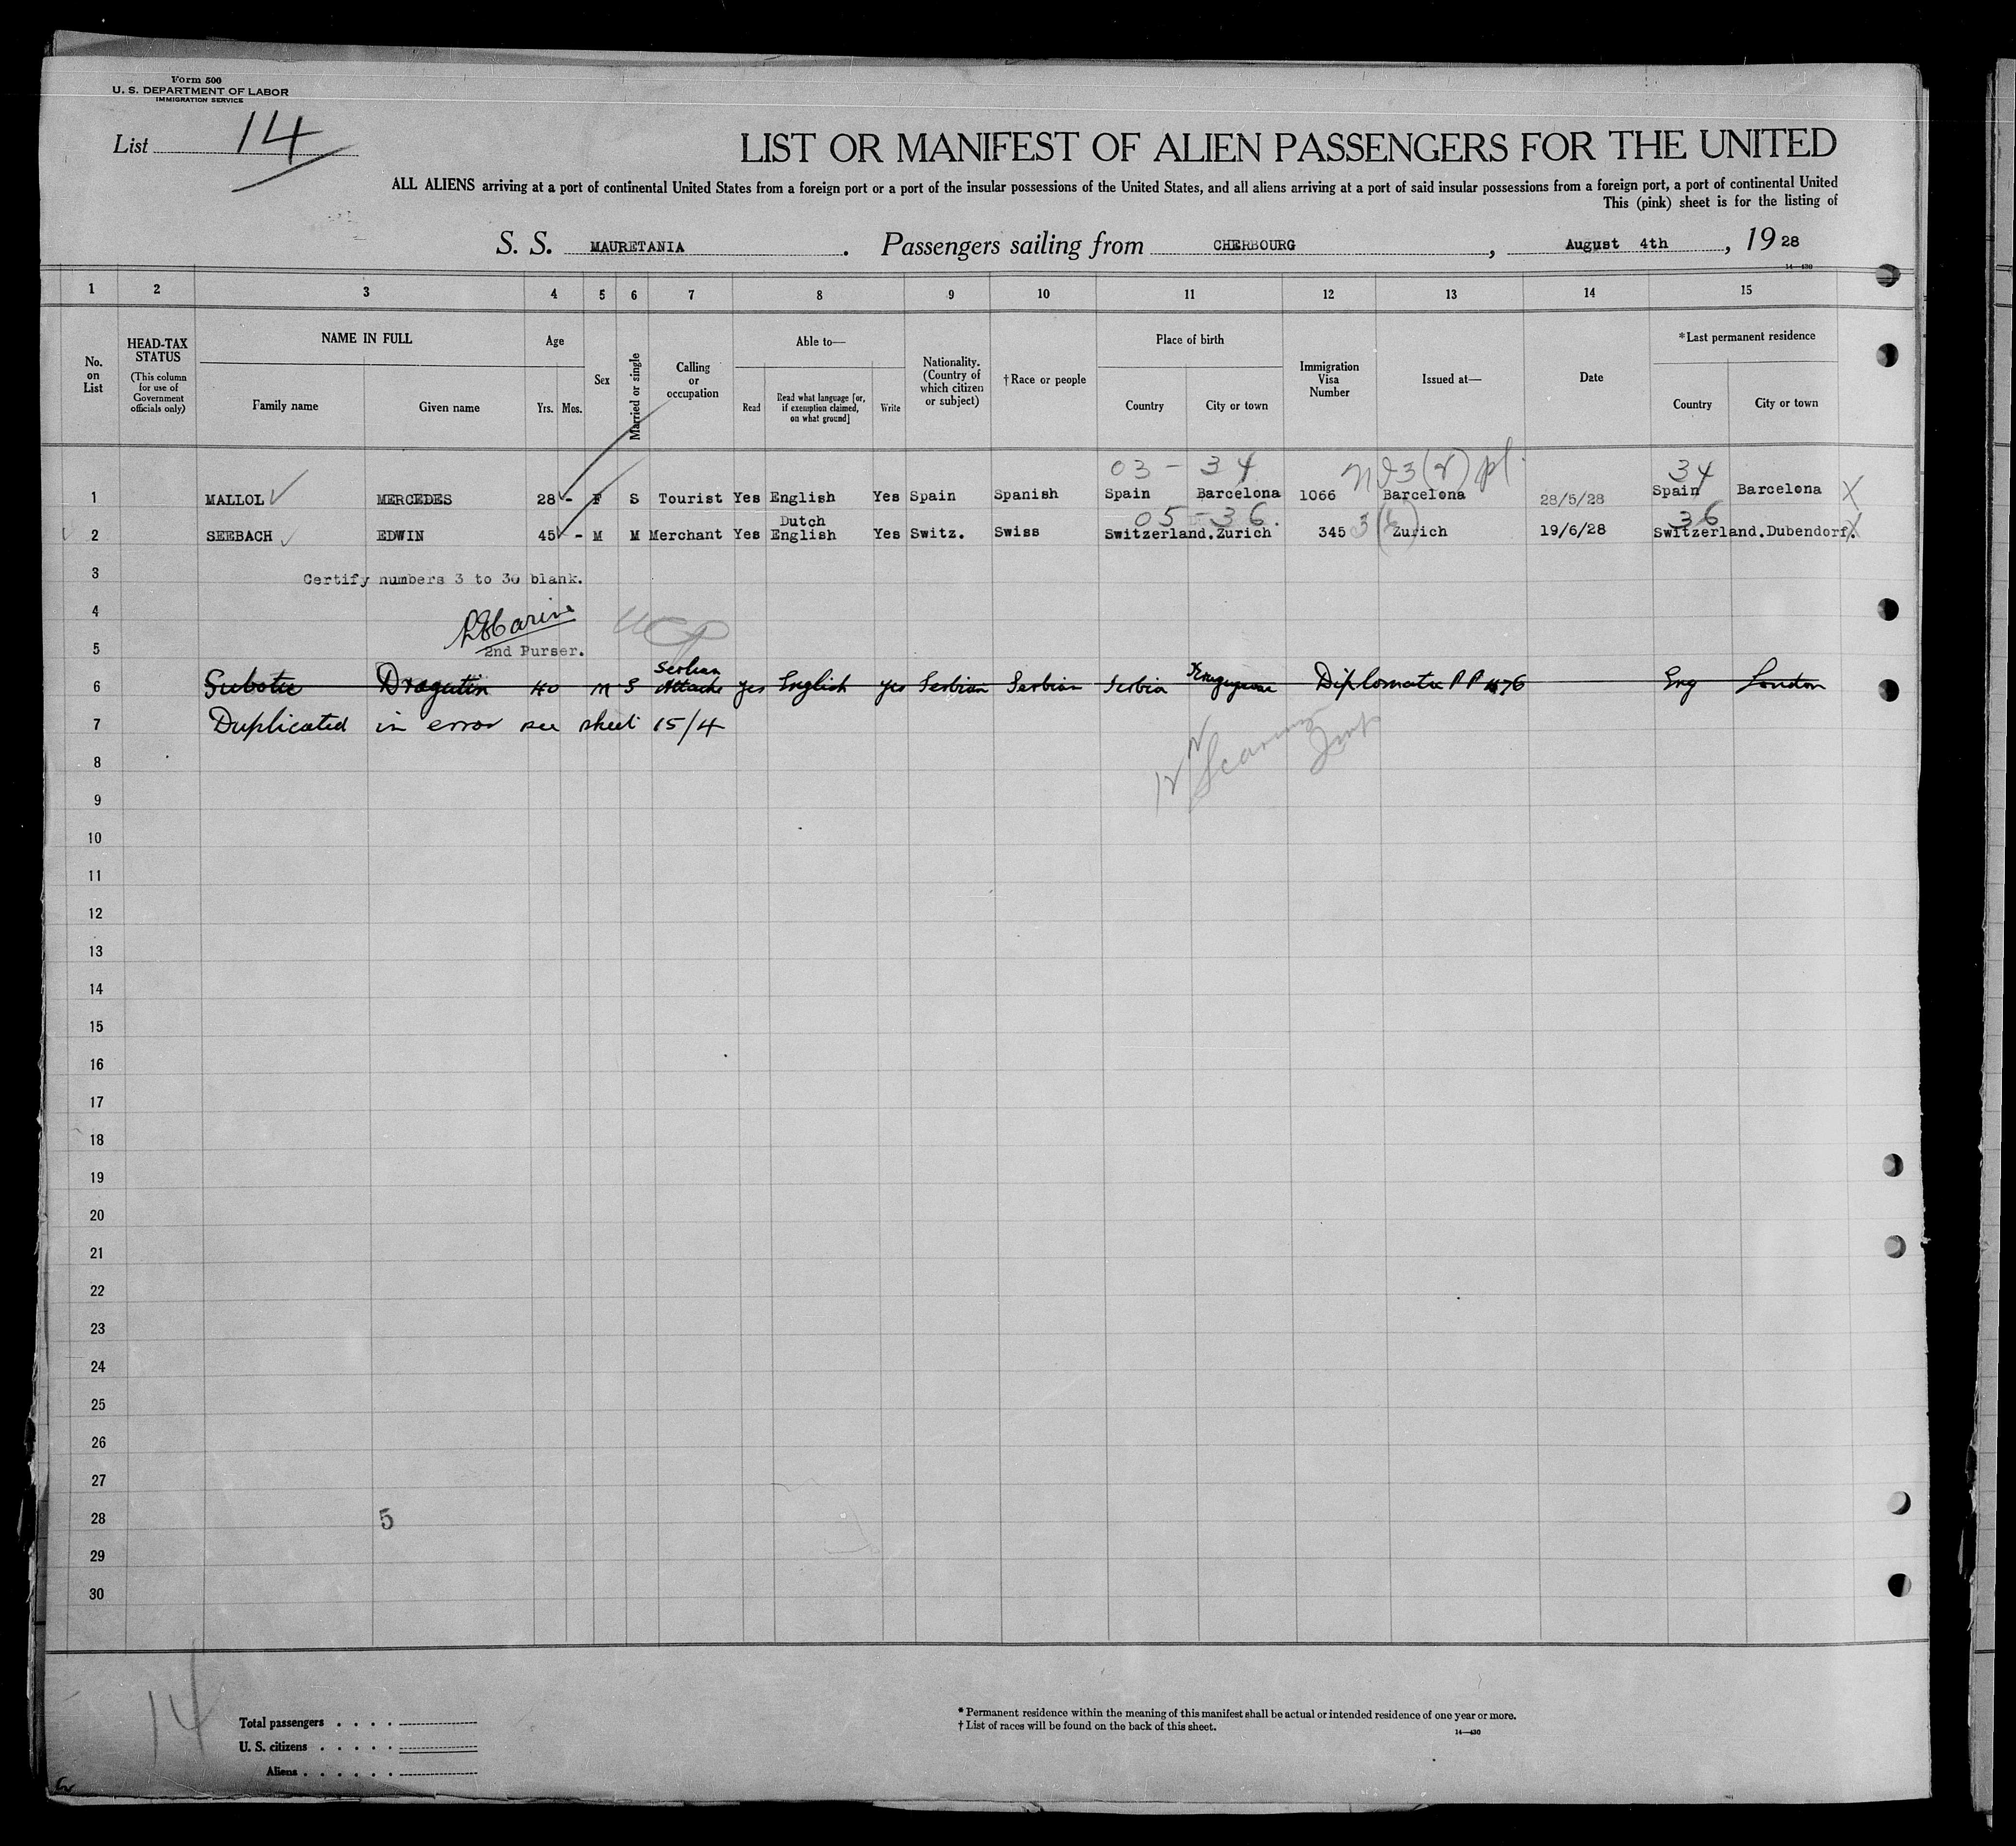 Form 500
U. S. DEPARTMENT OF LABOR
IMMIGRATION SERVICE
List 14
LIST OR MANIFEST OF ALIEN PASSENGERS FOR THE UNITED
ALL ALIENS arriving at a port of continental United States from a foreign port or a port of the insular possessions of the United States, and all aliens arriving at a port of said insular possessions from a foreign port, a port of continental United
This (pink) sheet is for the listing of
S. S. MAURETANIA. Passengers sailing from CHERBOURG, August 4th, 1928
14—430
1 2 3 4 5 6 7 8 9 10 11 12 13 14 15
No. on List
HEAD-TAX STATUS (This column for use of Government officials only)
NAME IN FULL Family name Given name
Age Yrs. Mos.
Sex
Married or single
Calling or occupation
Able to— Read Read what language [or, if exemption claimed, on what ground] Write
Nationality. (Country of which citizen or subject)
†Race or people
Place of birth Country City or town
Immigration Visa Number
Issued at—
Date
*Last permanent residence Country City or town
03 - 34 34
1 MALLOL MERCEDES 28 - F S Tourist Yes English Yes Spain Spanish Spain Barcelona 1066 Barcelona 28/5/28 Spain Barcelona X
Dutch 05 - 36. 36
2 SEEBACH EDWIN 45 - M M Merchant Yes English Yes Switz. Swiss Switzerland.Zurich 345 Zurich 19/6/28 Switzerland.Dubendorf. X
3 Certify numbers 3 to 30 blank.
4
5 2nd Purser.
Serbian
6 Subotic Dragutin 40 M S Attache yes English yes Serbian Serbian Serbia Diplomatic PP 1176 Eng London
7 Duplicated in error see sheet 15/4
8
9
10
11
12
13
14
15
16
17
18
19
20
21
22
23
24
25
26
27
28 5
29
30
14
Total passengers
U. S. citizens
Aliens
* Permanent residence within the meaning of this manifest shall be actual or intended residence of one year or more.
† List of races will be found on the back of this sheet.
14—430